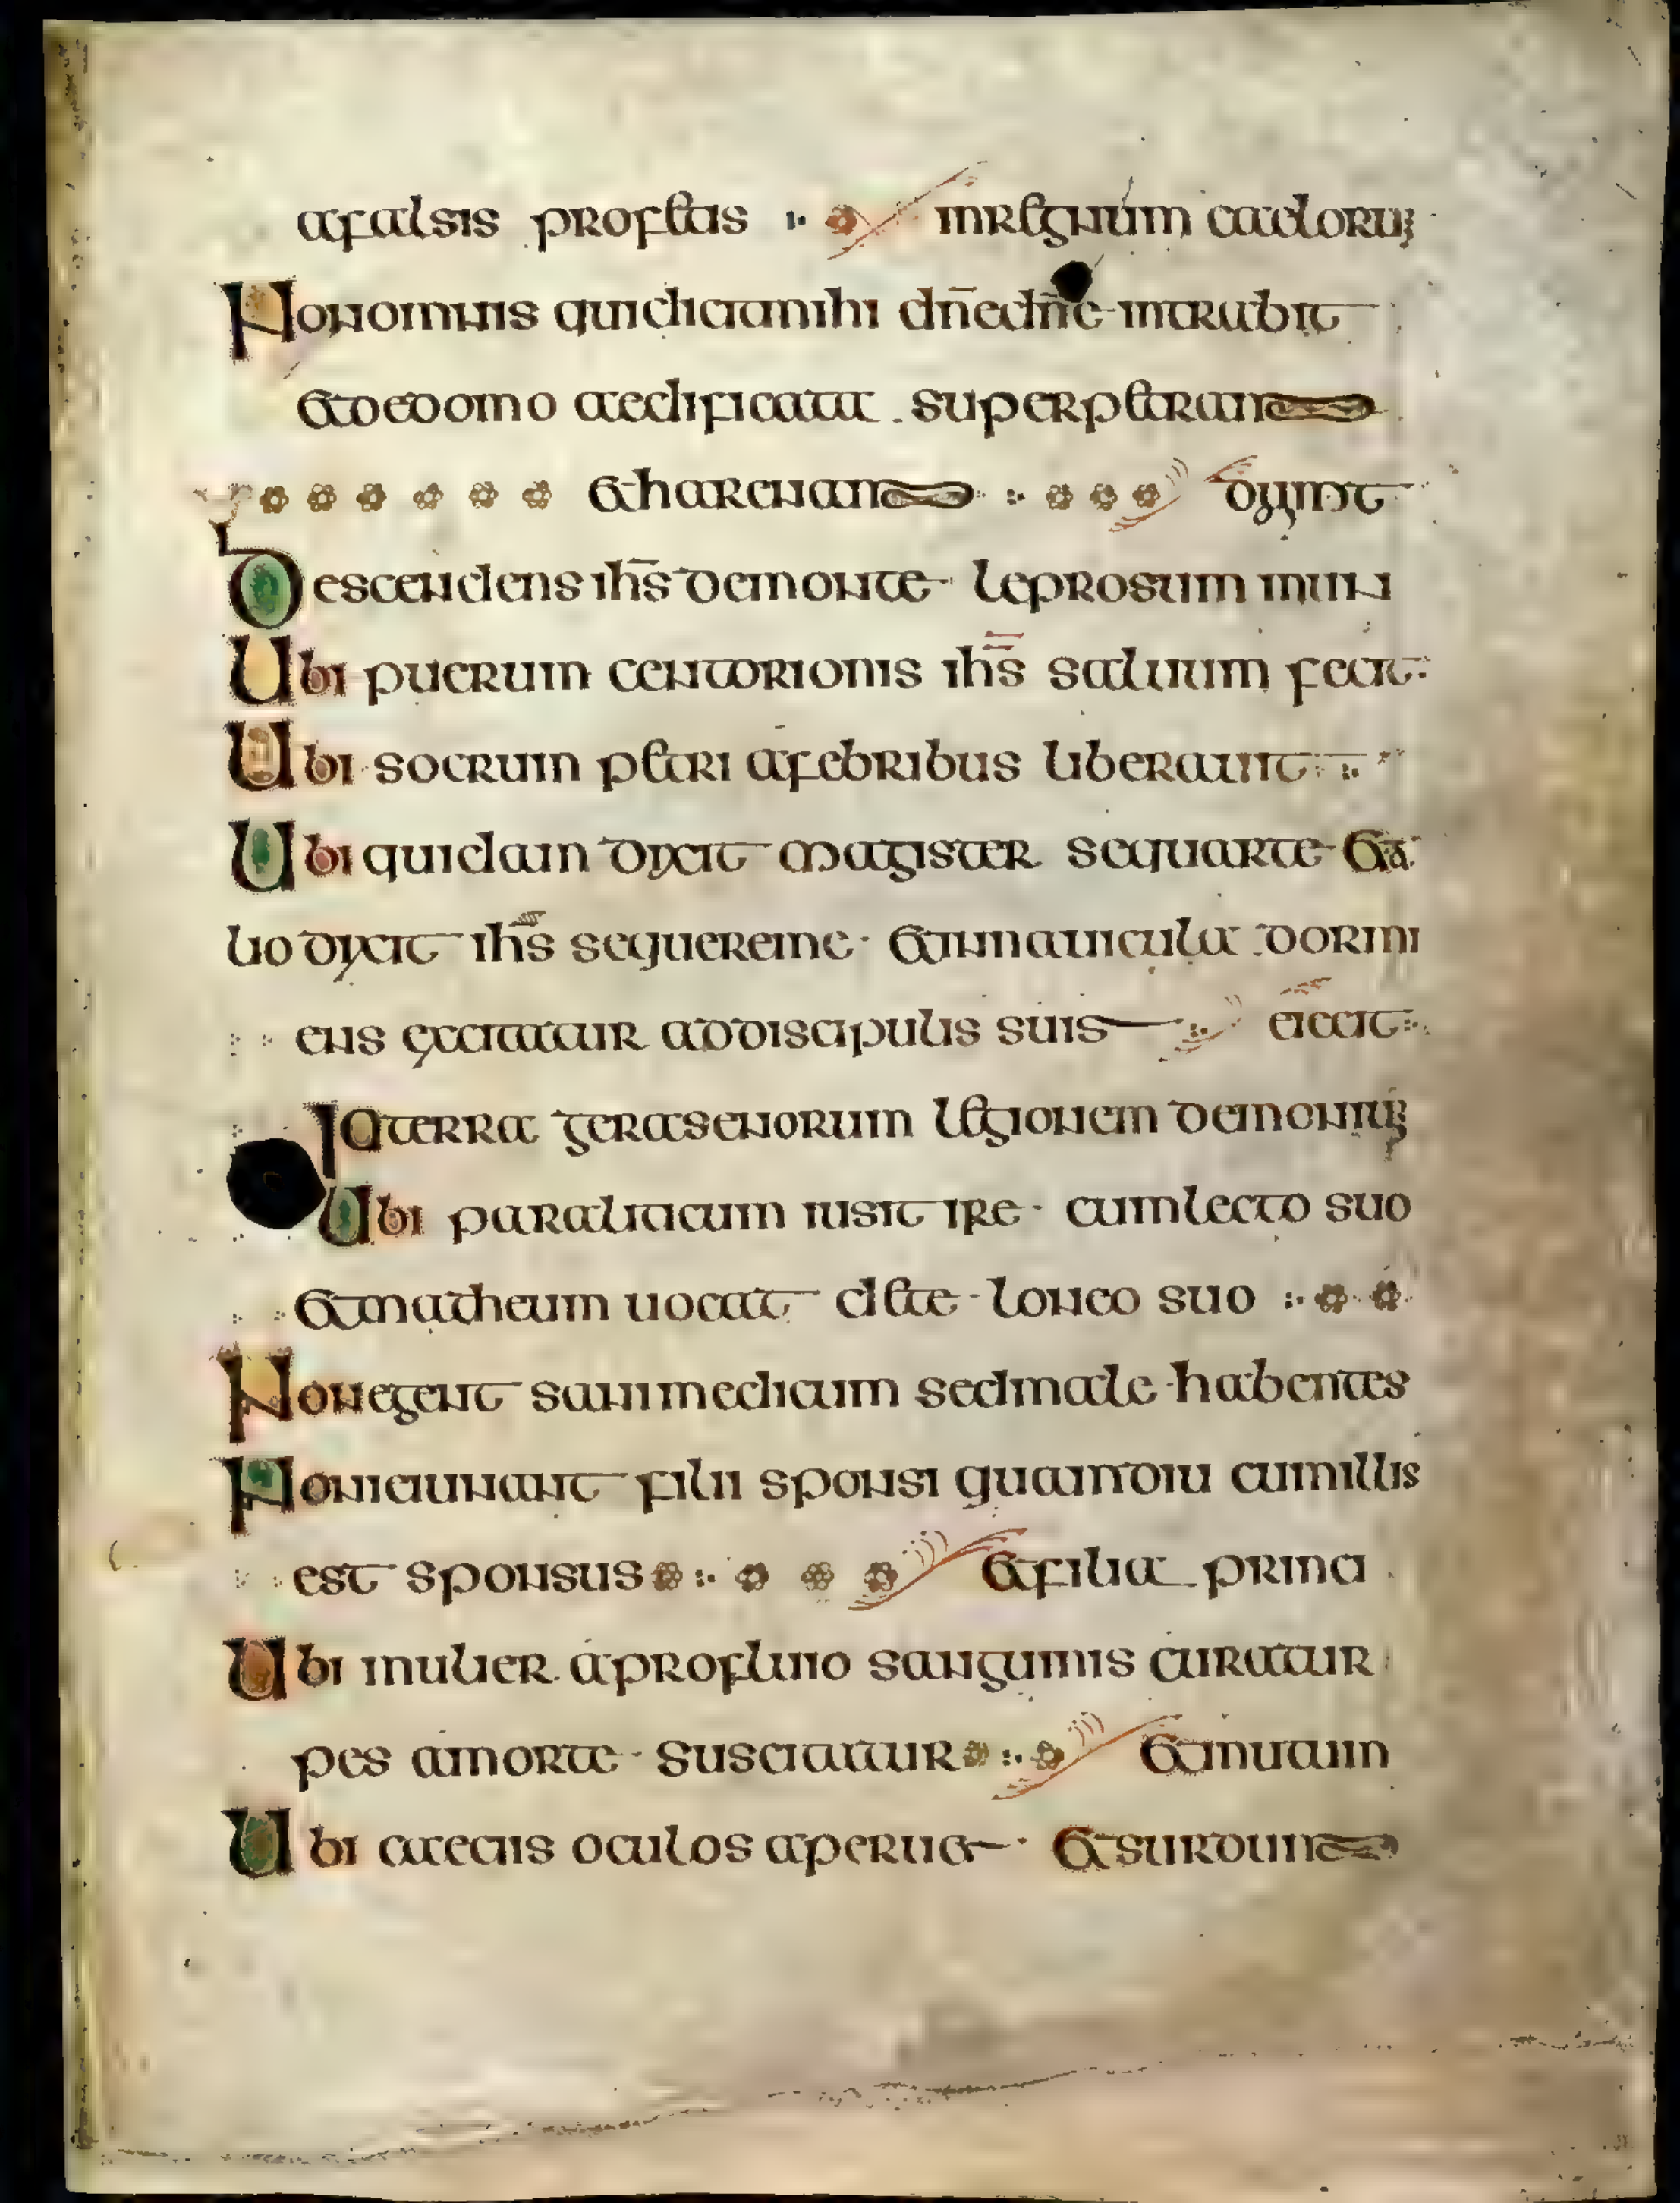 afalsis profetis in regnum caeloru;
Non omnis qui dicit mihi dn̄e dn̄e intrabit
et de domo aedificata super petram
et harenam dyxit
Descendens ih̄s de monte leprosum mun
Ubi puerum centorionis ih̄s saluum fecit
Ubi socrum petri a febribus liberauit
Ubi quidam dyxit magister sequar te et a
lio dyxit ih̄s sequere me et in nauicula dormi
ens excitatur a discipulis suis eiecit
In terra gerasenorum legionem demoniu;
Ubi paraliticum iusit ire cum lecto suo
et matheum uocat de teloneo suo
Non egent sani medicum sed male habentes
Non ieiunant filii sponsi quamdiu cum illis
est sponsus et filia princi
Ubi mulier a profluio sanguinis curatur
pes a morte suscitatur et mutum
Ubi caecis oculos aperuit et surdum